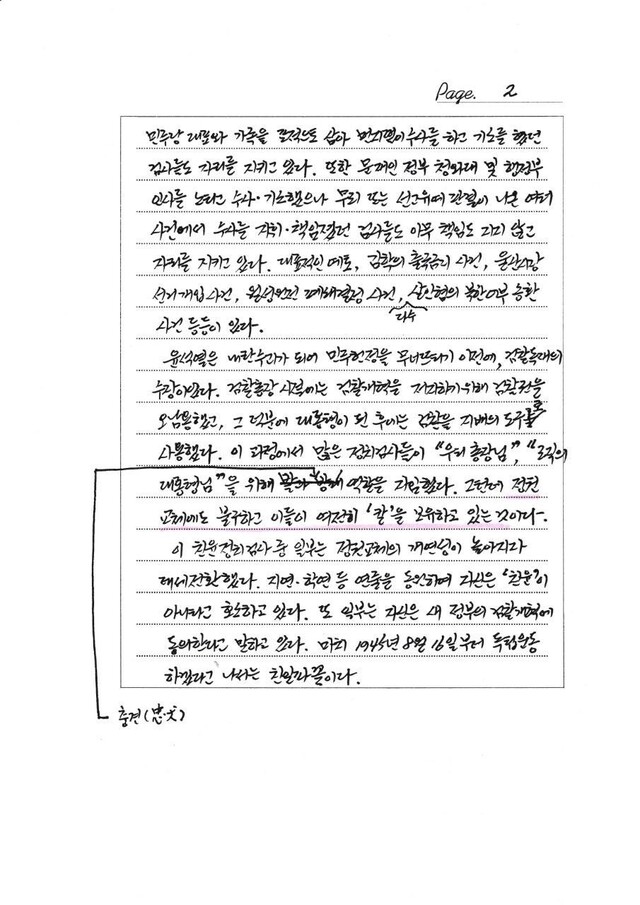 Page. 2
민주당 대표와 가족을 표적으로 삼아 먼지털이 수사를 하고 기소를 했던
검사들도 자리를 지키고 있다. 또한 문재인 정부 청와대 및 행정부
인사를 노리고 수사·기소했으나 무죄 또는 선고유예 판결이 나온 여러
사건에서 수사를 지휘·책임졌던 검사들도 아무 책임도 지지 않고
자리를 지키고 있다. 대표적인 예로, 김학의 출국금지 사건, 울산시장
선거개입 사건, 월성원전 폐쇄결정 사건, 살인혐의 북한어부 송환
다수
사건 등등이 있다.
윤석열은 내란수괴가 되어 민주헌정을 무너뜨리기 이전에, 검찰독재의
수장이었다. 검찰총장 시절에는 검찰개혁을 저지하기 위해 검찰권을
오남용했고, 그 덕분에 대통령이 된 후에는 검찰을 지배의 도구로
사용했다. 이 과정에서 많은 정치검사들이 “우리 총장님”, “조직의
대통령님”을 위해 역할을 자임했다. 그런데 정권
교체에도 불구하고 이들이 여전히 ‘칼’을 보유하고 있는 것이다.
이 친윤정치검사 중 일부는 정권교체의 개연성이 높아지자
태세전환했다. 지연·학연 등 연줄을 동원하며 자신은 ‘친윤’이
아니라고 호소하고 있다. 또 일부는 자신은 새 정부의 검찰개혁에
동의한다고 말하고 있다. 마치 1945년 8월 16일부터 독립운동
하겠다고 나서는 친일파 꼴이다.
충견(忠犬)